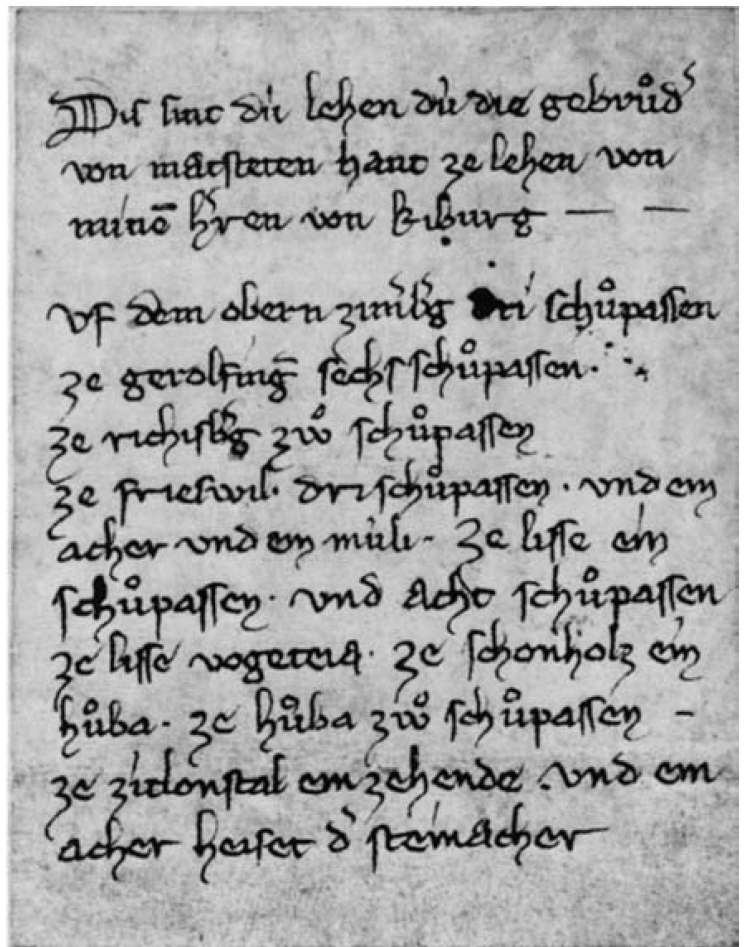 Dis sint dú lehen dú die gebrůd᾽
von matsteten hant ze lehen von
minē h᾽ren von kiburg — —
vf dem obern zim᾽b᾽g dri schůpassen
ze gerolfing̅ sechs schůpassen.
ze richisb᾽g zwo̊ schůpassen
ze frieswil. dri schůpassen. vnd ein
acher vnd ein múli. ze lisse ein
schůpassen. vnd acht schůpassen
ze lisse vogeteia. ze schonholz ein
hůba. ze hůba zwo̊ schůpassen -
ze zitlonstal ein zehende. vnd ein
acher heiset d᾽ steinacher